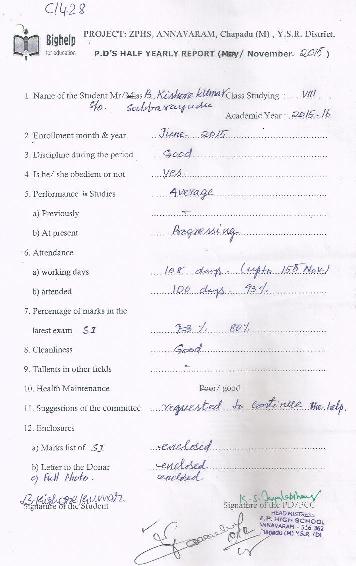 C/1428
Bighelp
for education
PROJECT: ZPHS, ANNAVARAM, Chapadu (M), Y.S.R. District.
P.D'S HALF YEARLY REPORT (May/ November- 2015)
1. Name of the Student Mr/Miss B. Kishore Kumar Class Studying : VIII
S/o. Subbarayudu
Academic Year : 2015-16
2. Enrollment month & year June 2015
3. Discipline during the period Good
4. Is he/ she obedient or not yes
5. Performance in Studies Average
a) Previously -
b) At present Progressing
6. Attendance
a) working days 108 days (upto 15th Nov.)
b) attended 100 days 93%
7. Percentage of marks in the
latest exam SI 80%
8. Cleanliness Good
9. Tallents in other fields -
10. Health Maintenance Poor/ good
11. Suggestions of the committee requested to continue the help.
12. Enclosures
a) Marks list of SI enclosed
b) Letter to the Donar enclosed
c) Full Photo. enclosed
B. Kishore Kumar
Signature of the Student
Signature of the PD/PCC
HEADMISTRESS
Z.P. HIGH SCHOOL
ANNAVARAM - 516 362
Chapadu (M) Y.S.R. (D)